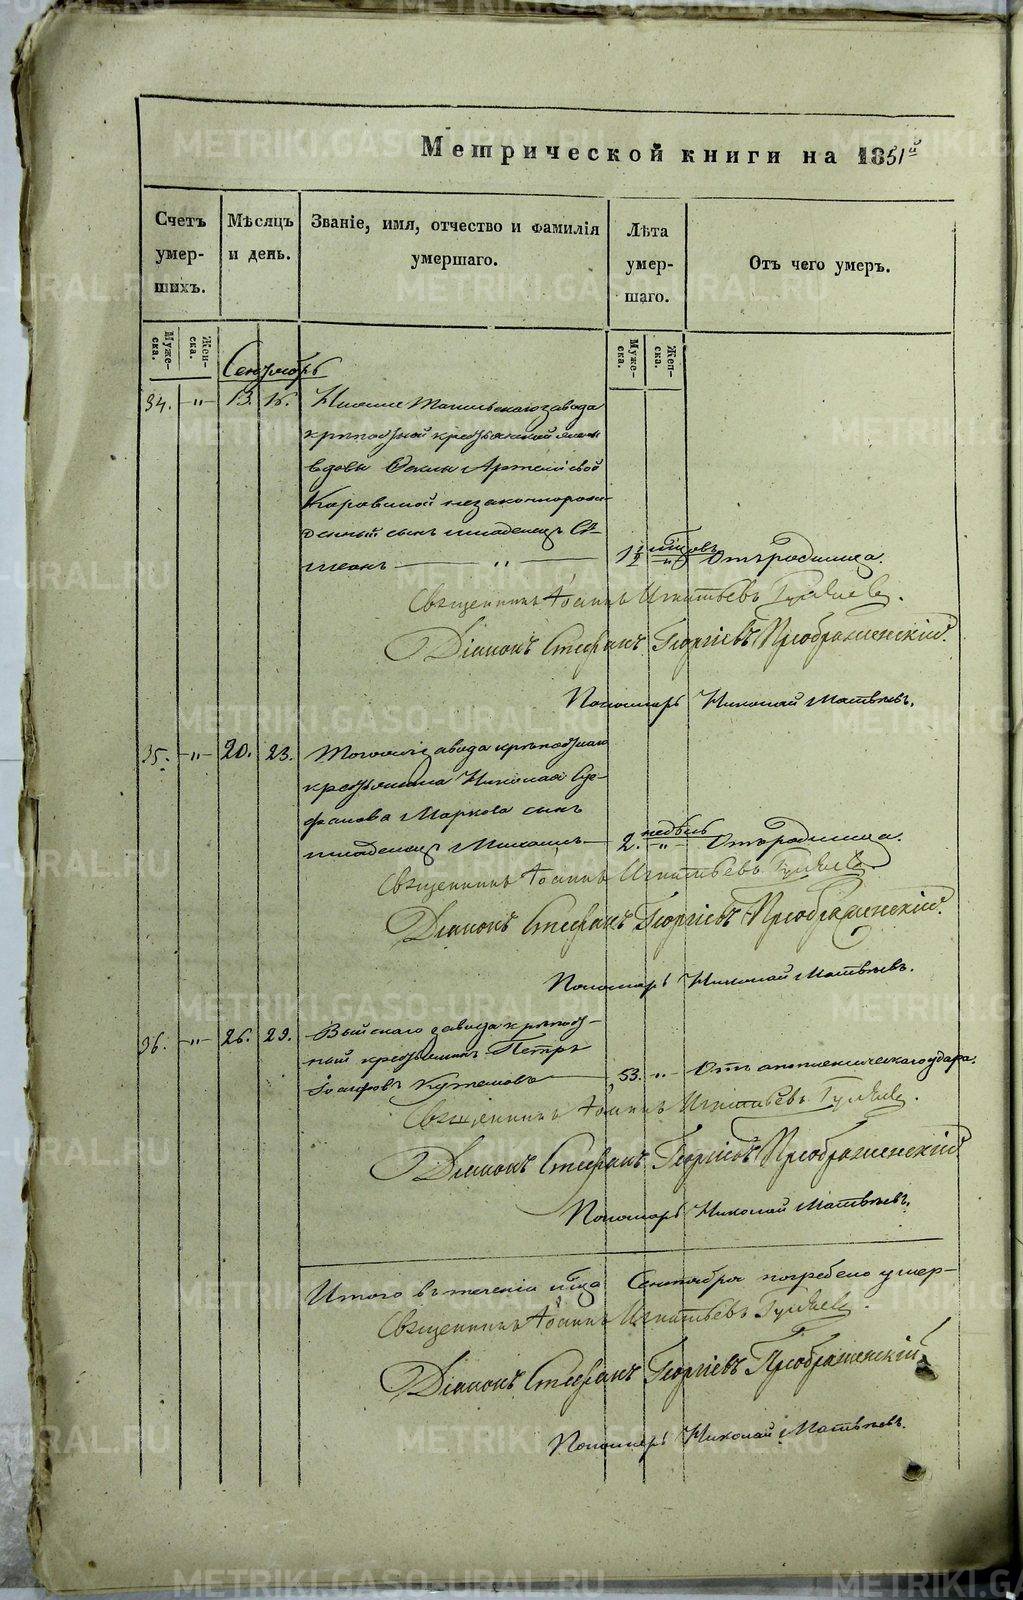 Метрической книги на 1851й
Счетъ умер- шихъ.
Мѣсяцъ и день.
Званіе, имя, отчество и фамилія умершаго.
Лѣта умер- шаго.
Отъ чего умеръ.
Муже- ска.
Жен- ска.
Муже- ска.
Жен- ска.
Сентябрь
34. -"- 13. 16. Нижне Тагильскаго завода
крѣпостной крестьянской
вдовы Артеміевой
незаконнорож-
денный сынъ младенецъ Си-
меонъ — " — 1½ мѣсяцовъ " Отъ родимца.
Священникъ Іоаннъ Игнатьевъ Гуляевъ.
Діаконъ Стефанъ Георгіевъ Преображенскій.
Пономарь Николай Матвѣевъ.
35. -"- 20. 23. Тогоже завода крѣпостнаго
крестьянина Николая Сте-
фанова Маркова сынъ
младенецъ Михаилъ — 2. недѣль " Отъ родимца.
Священникъ Іоаннъ Игнатьевъ Гуляевъ.
Діаконъ Стефанъ Георгіевъ Преображенскій.
Пономарь Николай Матвѣевъ.
36. -"- 26. 29. Выйскаго завода крѣпост-
ный крестьянинъ Петръ
Іосифовъ — 53. " Отъ апоплексическаго удара.
Священникъ Іоаннъ Игнатьевъ Гуляевъ.
Діаконъ Стефанъ Георгіевъ Преображенскій.
Пономарь Николай Матвѣевъ.
Итого въ теченіи мѣсяца Сентября погребено умер-
Священникъ Іоаннъ Игнатьевъ Гуляевъ.
Діаконъ Стефанъ Георгіевъ Преображенскій.
Пономарь Николай Матвѣевъ.
METRIKI.GASO-URAL.RU